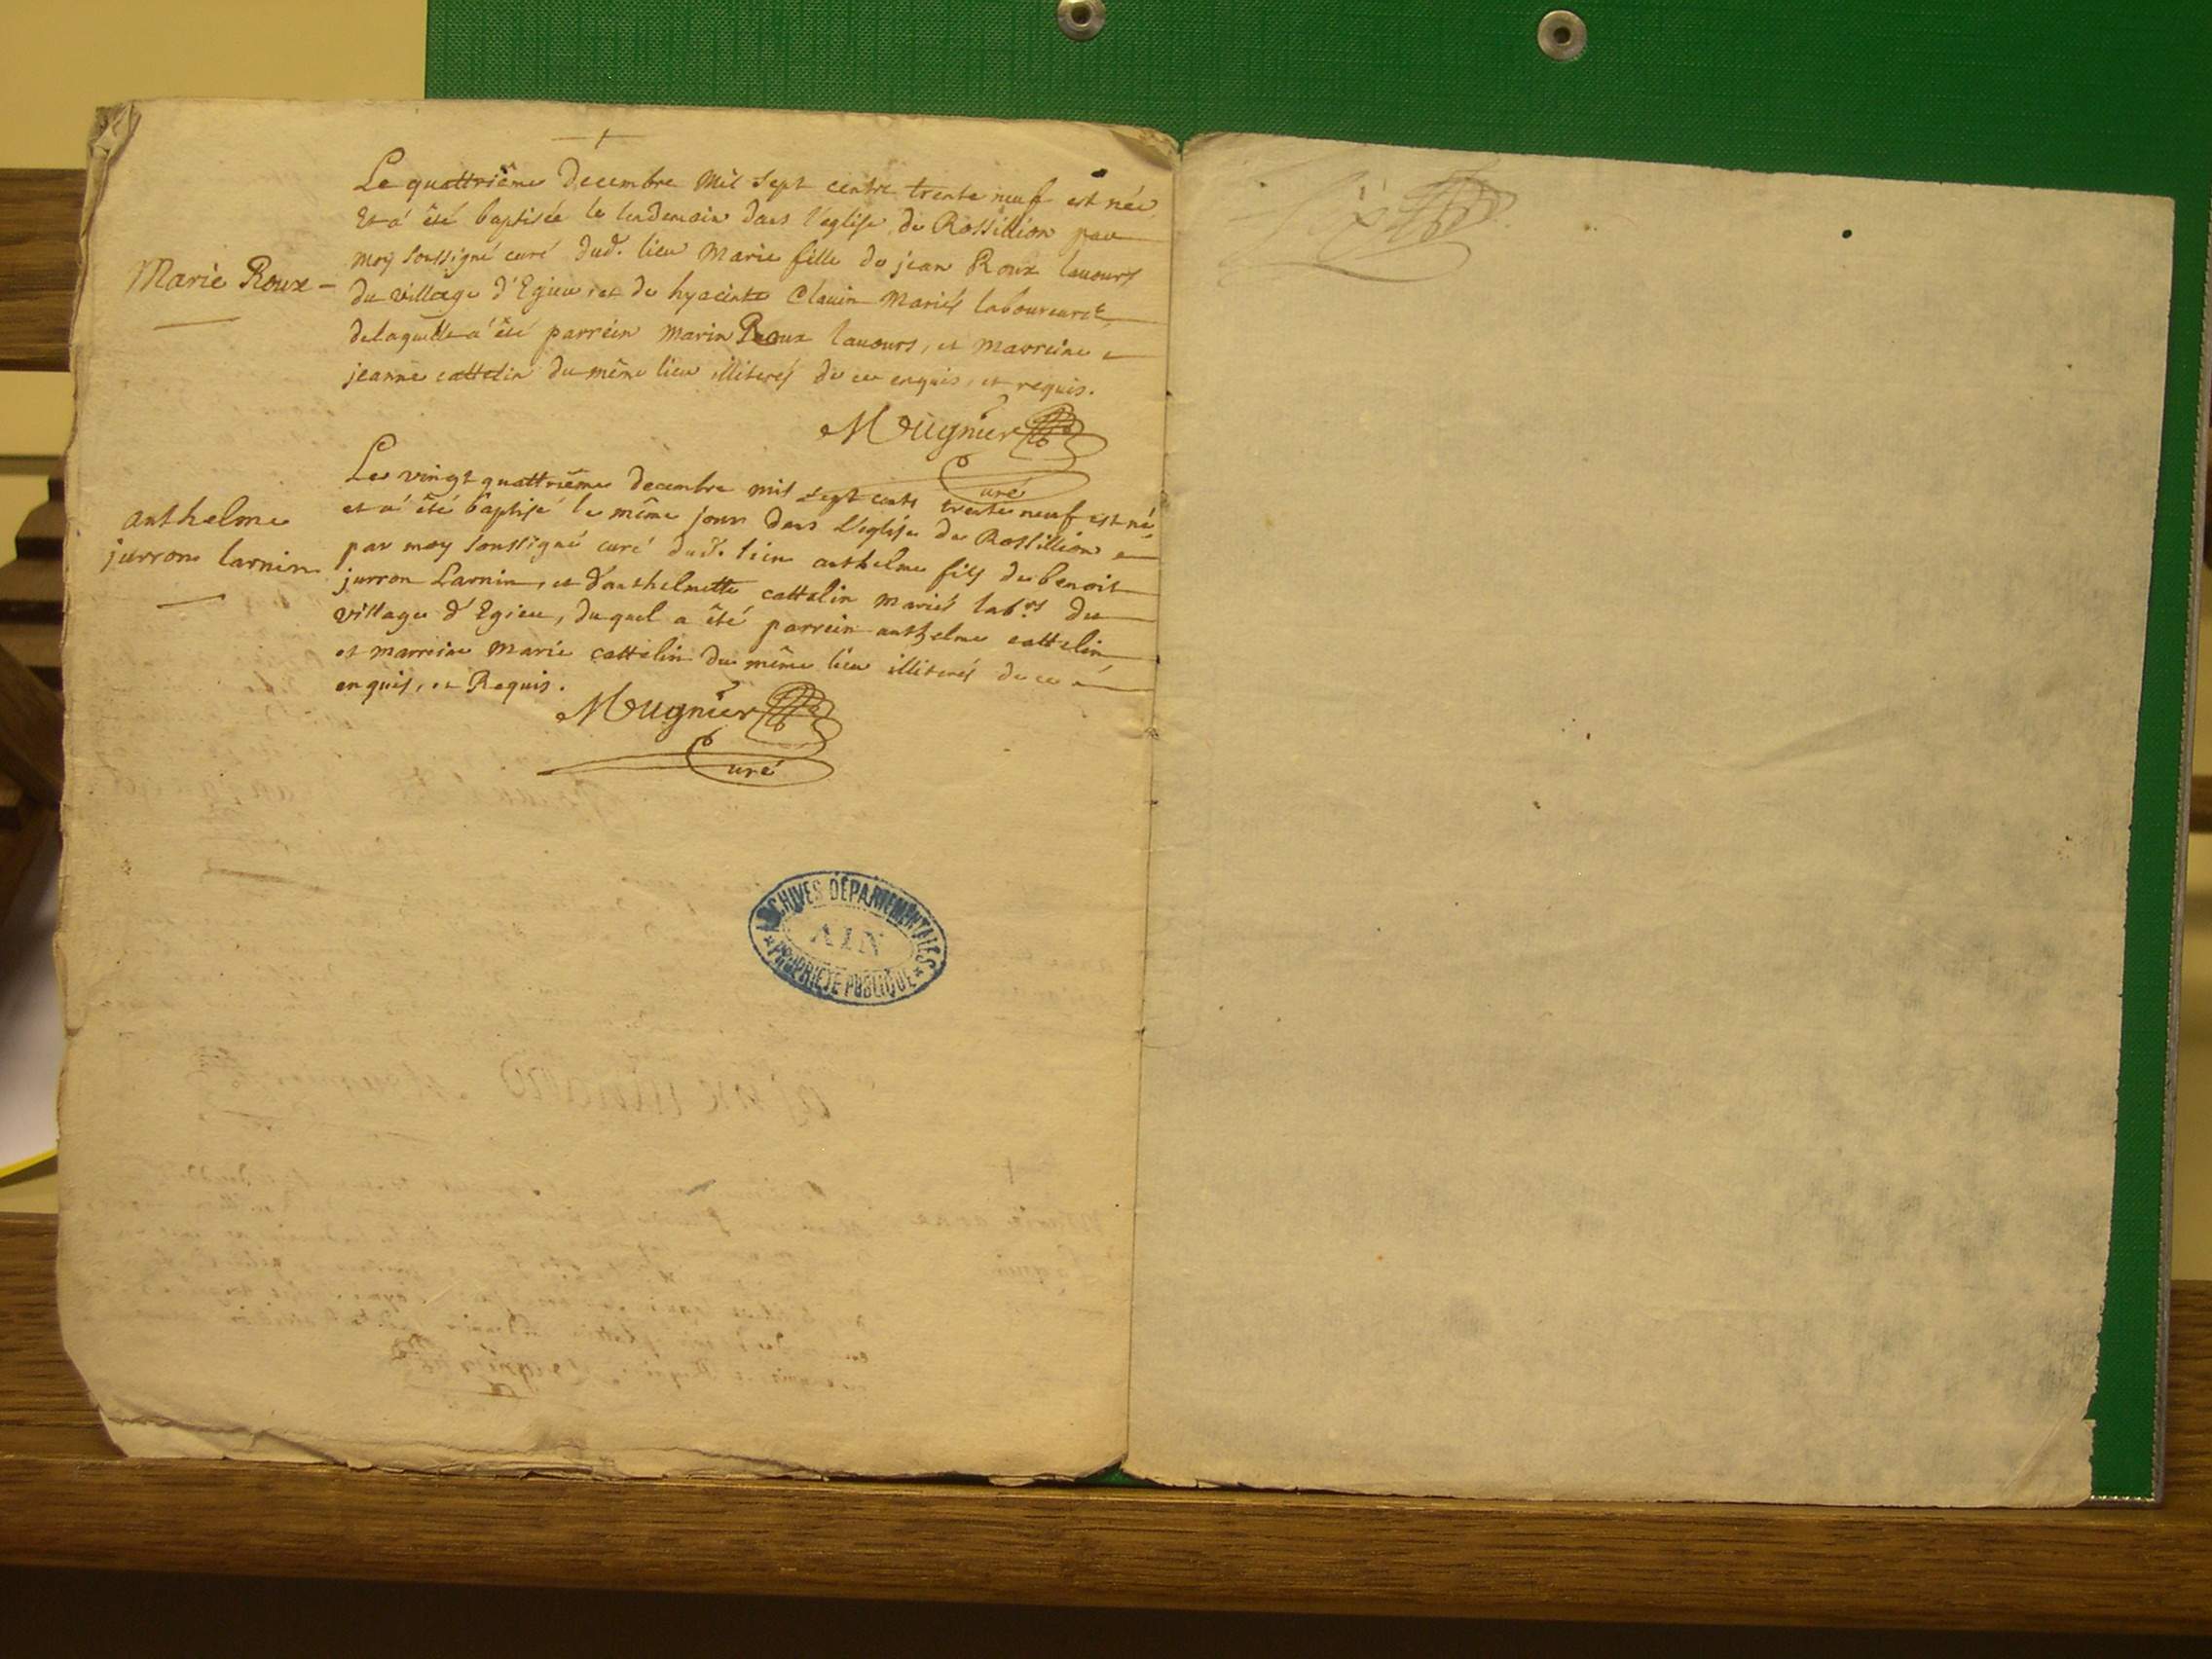 Le quattriême Decembre Mil Sept cents trente neuf est née
Et a été baptisée le lendemain dans l'eglise de Rossillion par
Marie Roux
moy soussigné curé dud. lieu Marie fille de jean Roux lauours
du village d'Egieu, et de hyacinte Clauin Mariés laboureurs
delaquelle a été parrein Marin Roux lauours, et marreine
jeanne cattelin du même lieu illiterés de ce enquis, et requis.
Mougnier
Curé
Le vingt quattriême decembre mil sept cents trente neuf est né
et a été baptisé le même jour dans L'eglise de Rossillion
anthelme
jurron larnin
par moy soussigné curé dud. lieu anthelme fils de benoit
jurron Larnin, et d'anthelmette cattelin mariés labrs du
village d'Egieu, duquel a été parrein anthelme cattelin
et marreine Marie cattelin du même lieu illiterés de ce
enquis, et Requis.
Mougnier
Curé
ARCHIVES DÉPARTEMENTALES
AIN
PROPRIÉTÉ PUBLIQUE